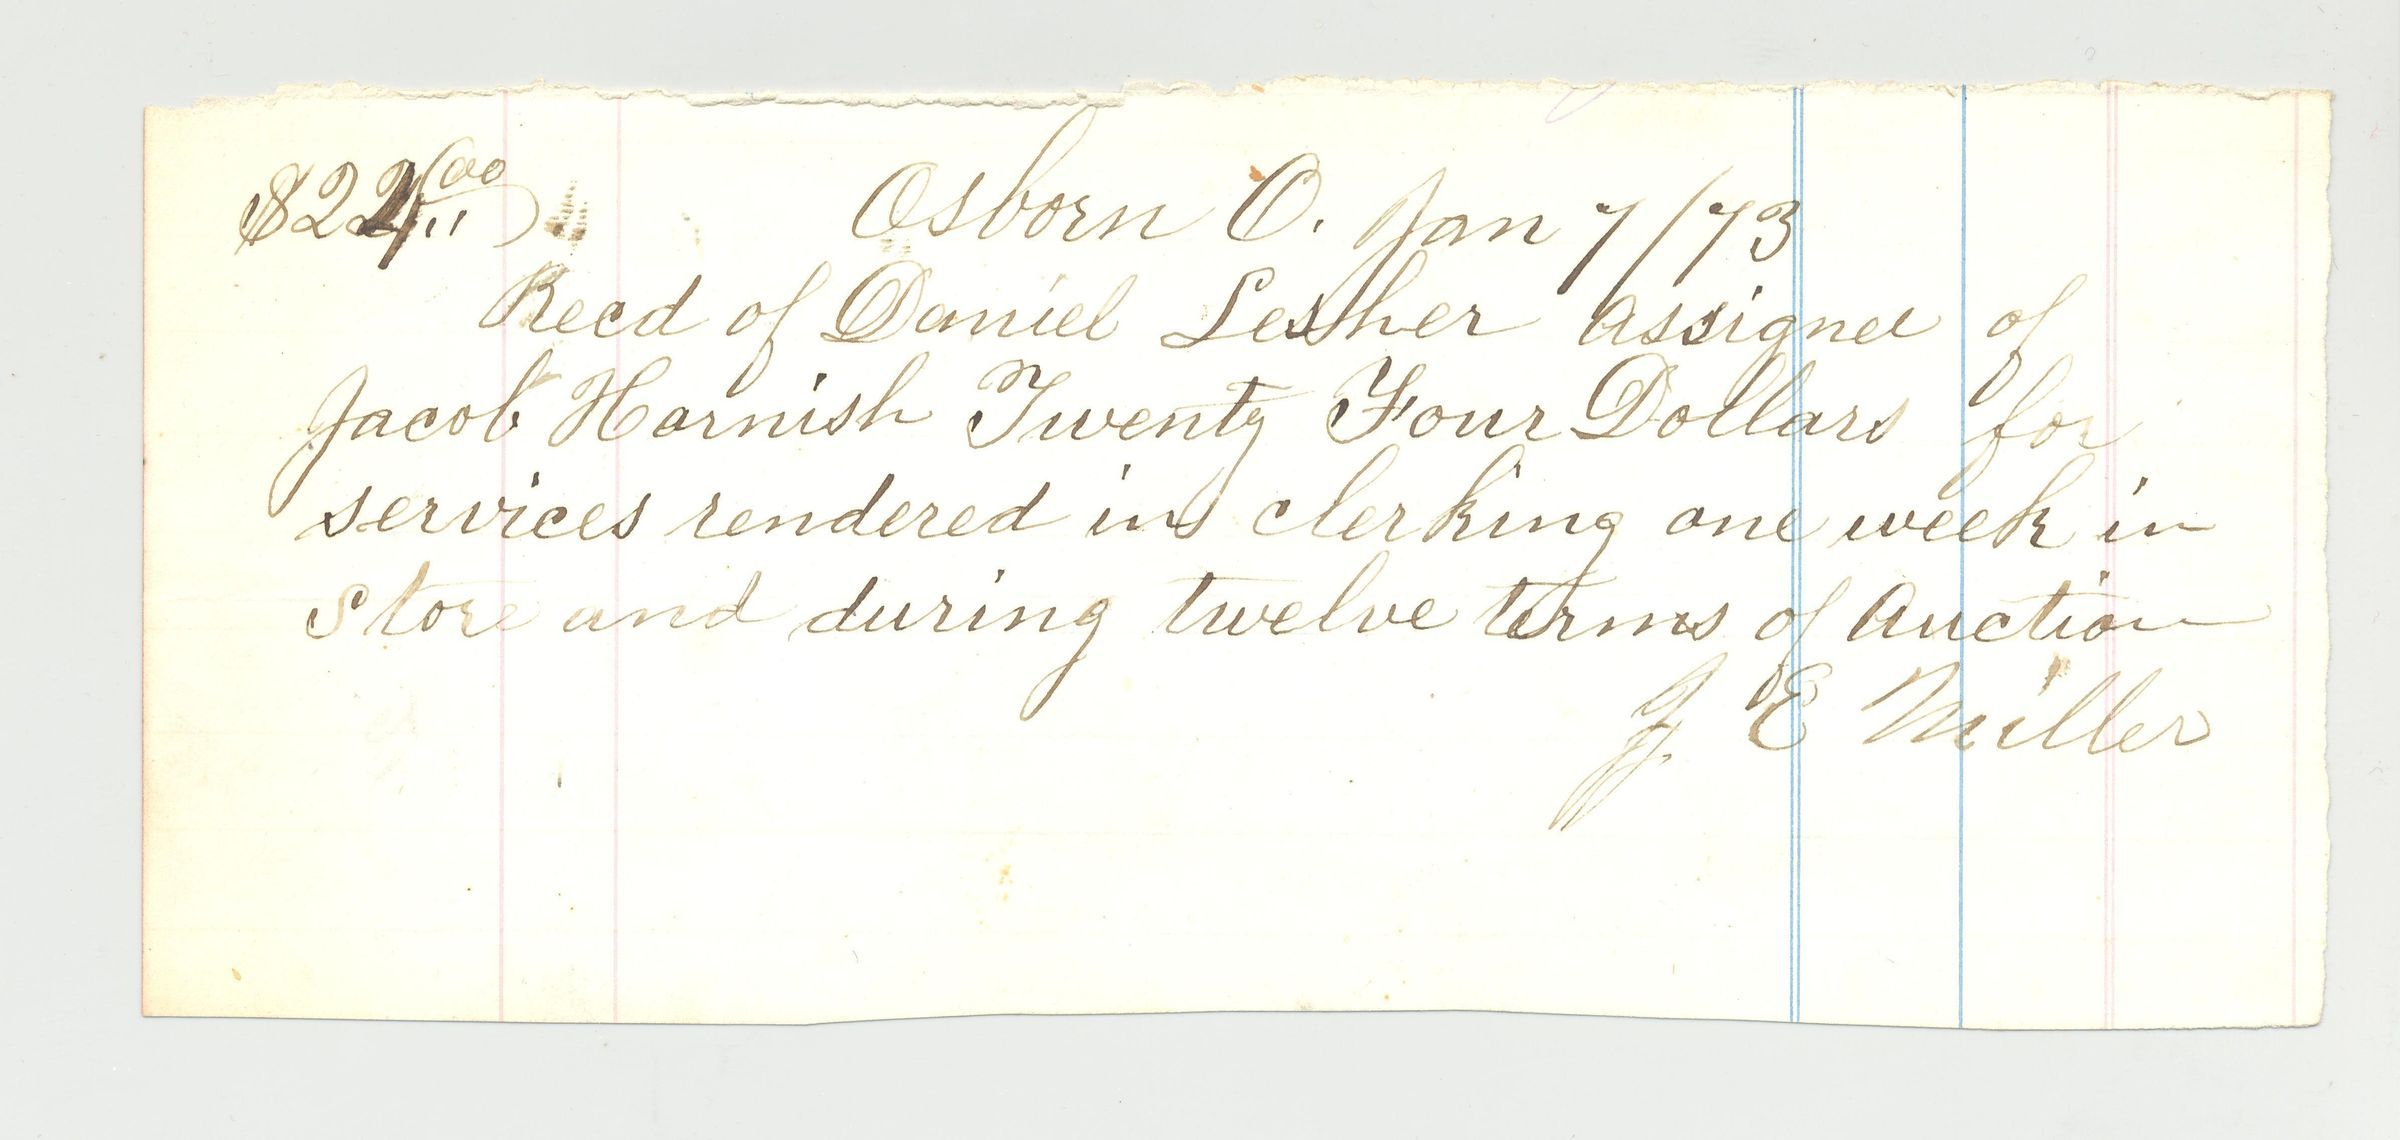 $24.00 Osborn O. Jan 7/73
Recd of Daniel Lesher Assignee of
Jacob Harnish Twenty Four Dollars for
services rendered in clerking one week in
Store and during twelve terms of Auction
J. E Miller